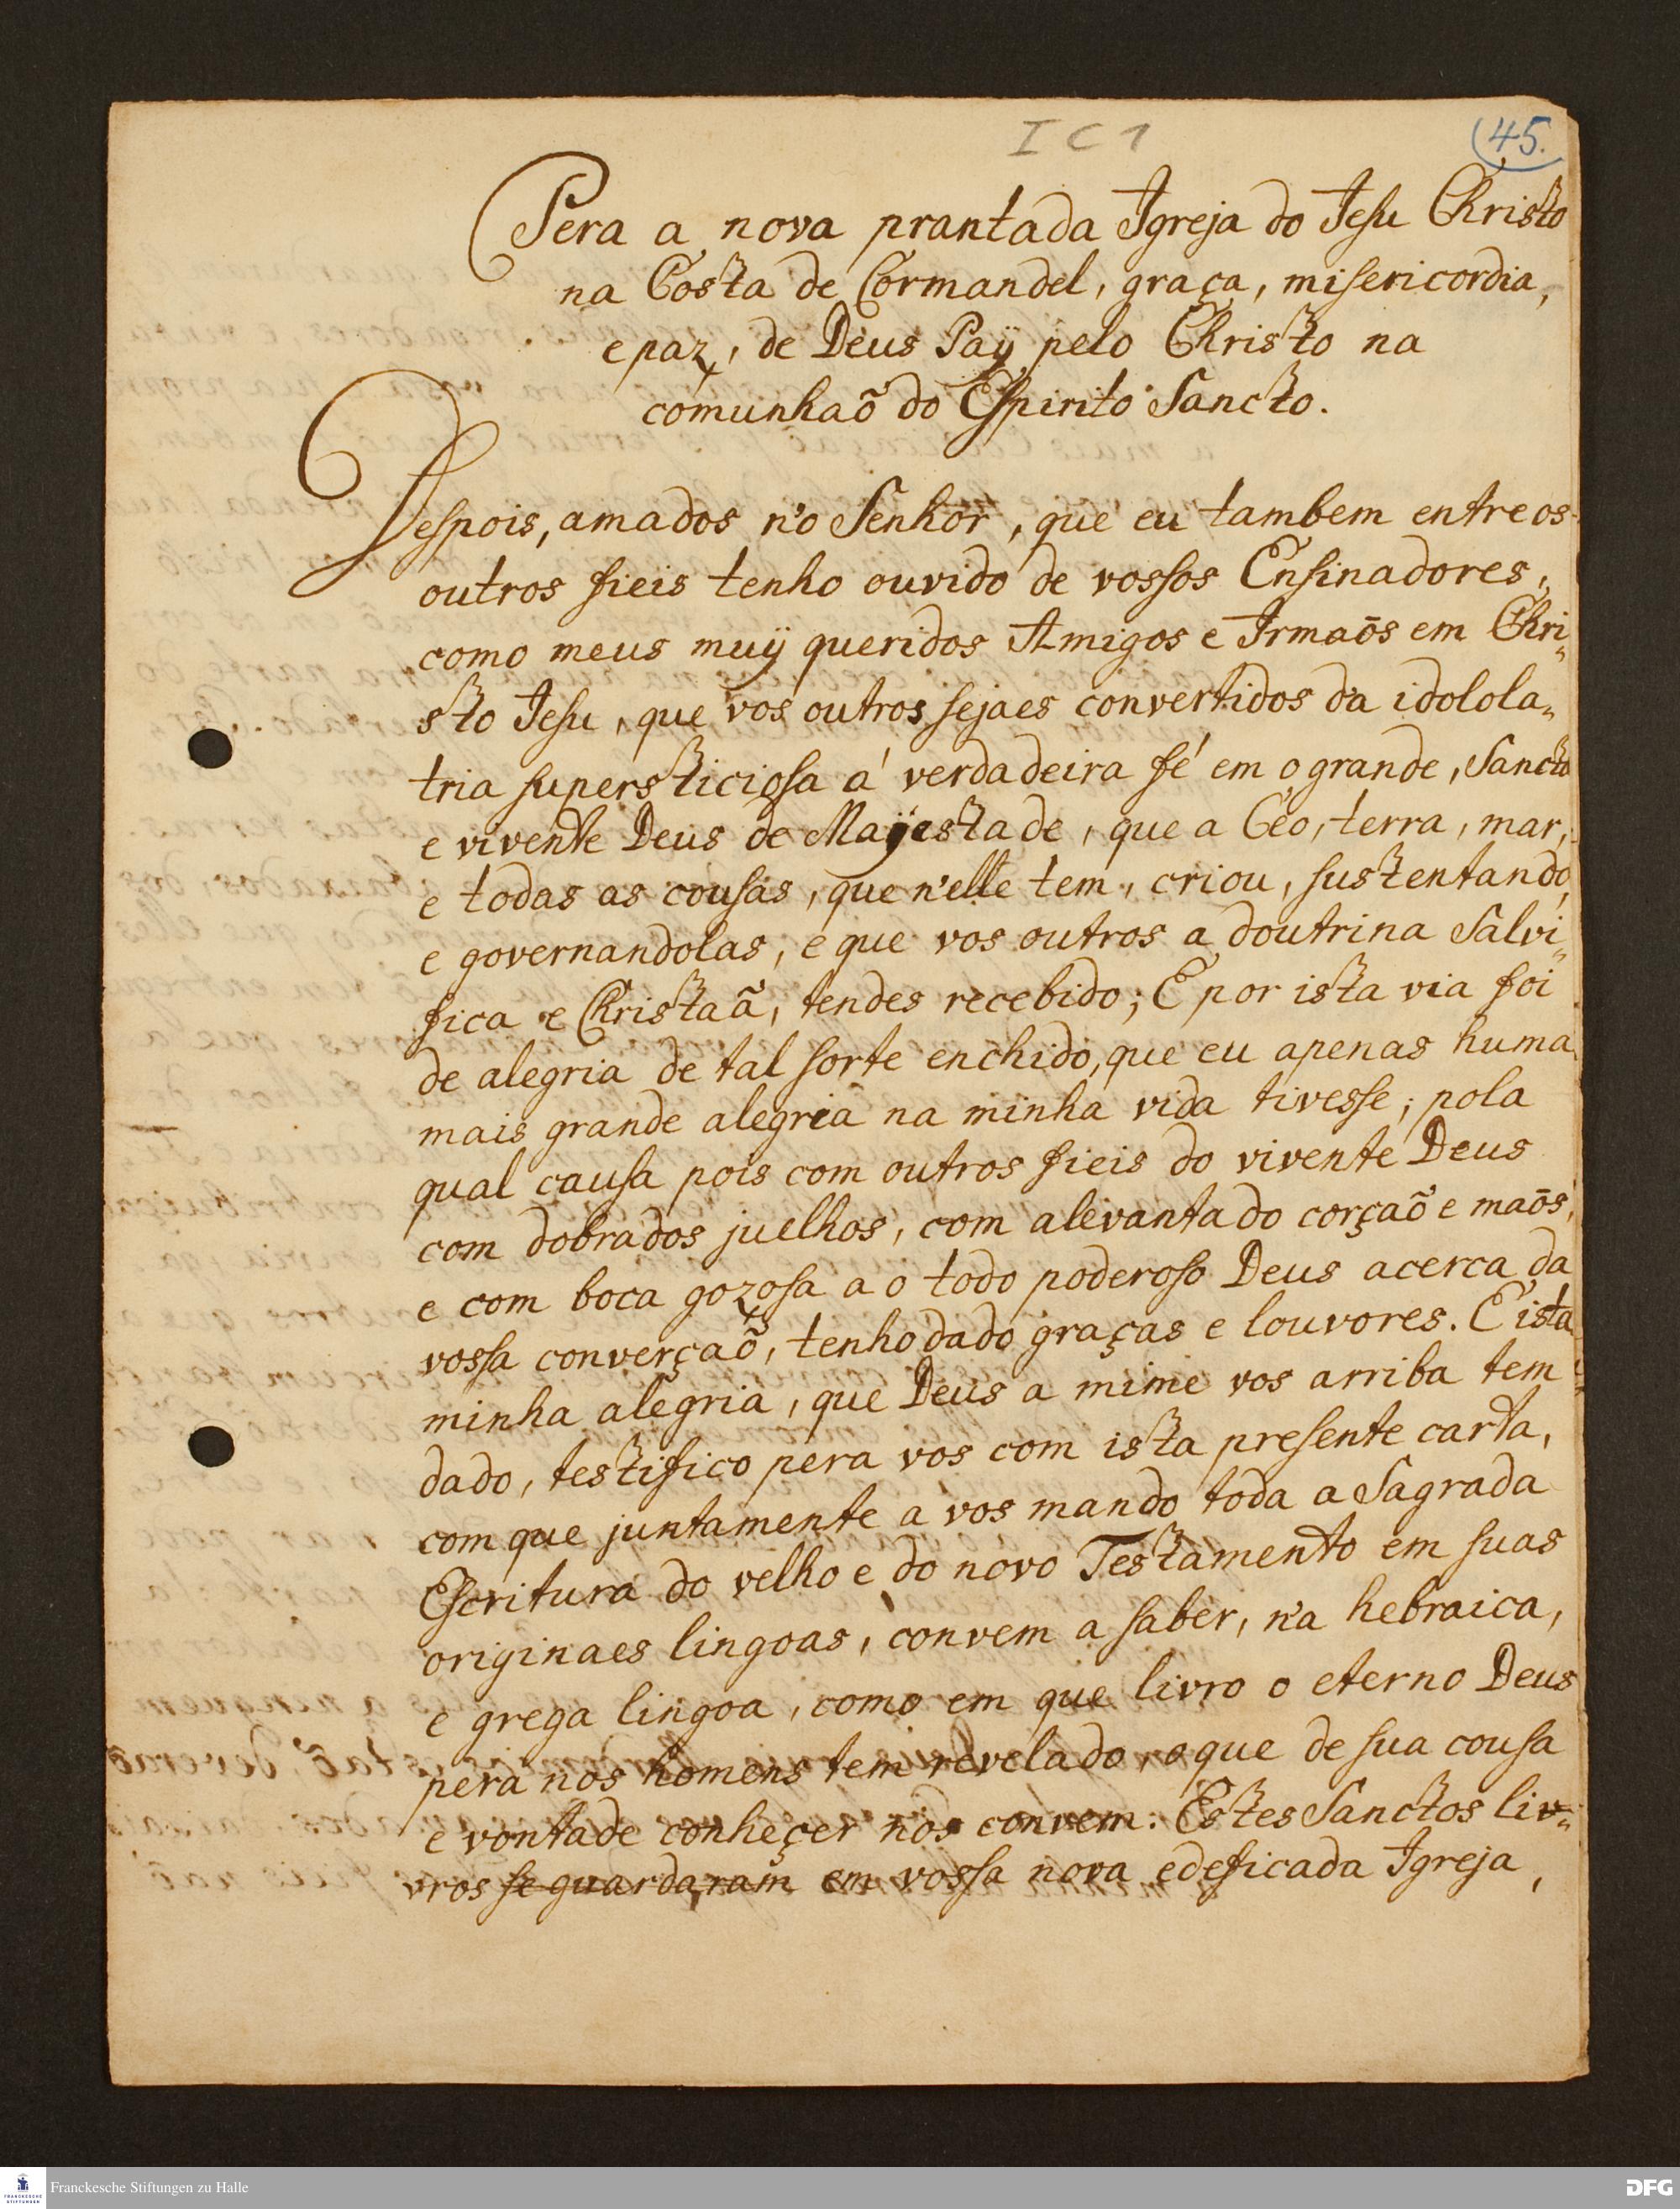 I C 1
45.
Pera a nova prantada Igreja do Jesu Christo
na Costa de Cormandel, graça, misericordia,
e paz, de Deus Paÿ pelo Christo na
comunhaõ do Espirito Sancto.
Despois, amados n'o Senhor, que eu tambem entre os
outros fieis tenho ouvido de vossos Ensinadores,
como meus muÿ queridos Amigos e Irmaõs em Chri„
sto Jesu, que vos outros sejaes convertidos d'a idolola„
tria supersticiosa á verdadeira fé em o grande, Sancto
e vivente Deus de Mayestade, que a Ceo, terra, mar,
e todas as cousas, que n'elle tem, criou, sustentando,
e governandolas, e que vos outros a doutrina Salvi„
fica e Christaã, tendes recebido; E por ista via foi
de alegria de tal sorte enchido, que eu apenas huma
mais grande alegria na minha vida tivesse; pola
qual causa pois com outros fieis do vivente Deus
com dobrados juelhos, com alevantado corçaõ e maõs,
e com boca gozosa a o todo poderoso Deus acerca da
vossa converçaõ, tenho dado graças e louvores. E ista
minha alegria, que Deus a mime vos arriba tem
dado, testifico pera vos com ista presente carta,
com que juntamente a vos mando toda a Sagrada
Escritura do velho e do novo Testamento em suas
originaes lingoas, convem a saber, n'a hebraica,
e grega lingoa, como em que livro o eterno Deus
pera nos homens tem revelado, o que de sua cousa
e vontade conheçer nos convem. Estes Sanctos liv„
vros se guardaram em vossa nova edeficada Igreja,
Franckesche Stiftungen zu Halle
DFG